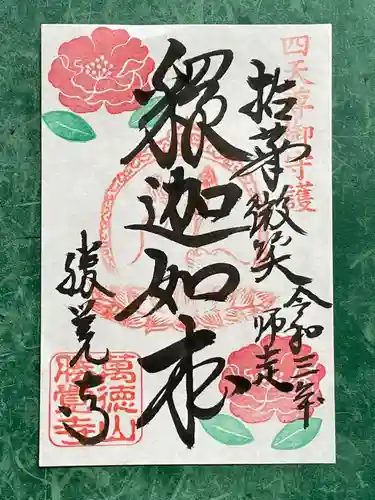 四天尊御守護
拈華微笑
令和三年
師走
釈迦如来
勝覚寺
萬徳山
勝覚寺